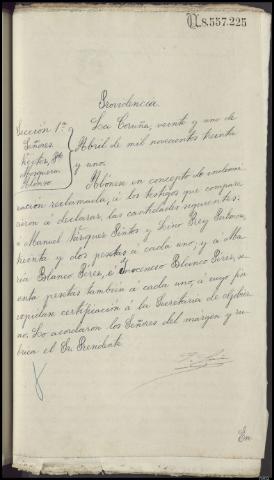 8.557.225
Providencia
Sección 1ª
Señores
Alonso
La Coruña, veinte y uno de
Abril de mil novecientos treinta
y uno.
Abónese en concepto de indemni-
zación reclamada, á los testigos que compare-
cieron á declarar, las cantidades siguientes:
á Manuel Vázquez y Lino Rey
treinta y dos pesetas á cada uno; y a Ma-
ría Blanco Pérez, é Inocencio Blanco Pérez, se-
senta pesetas también á cada uno, á cuyo fin
expídase certificación á la Secretaría de Gobier-
no. Lo acordaron los Señores del margen y ru-
brica el Sr. Presidente
En